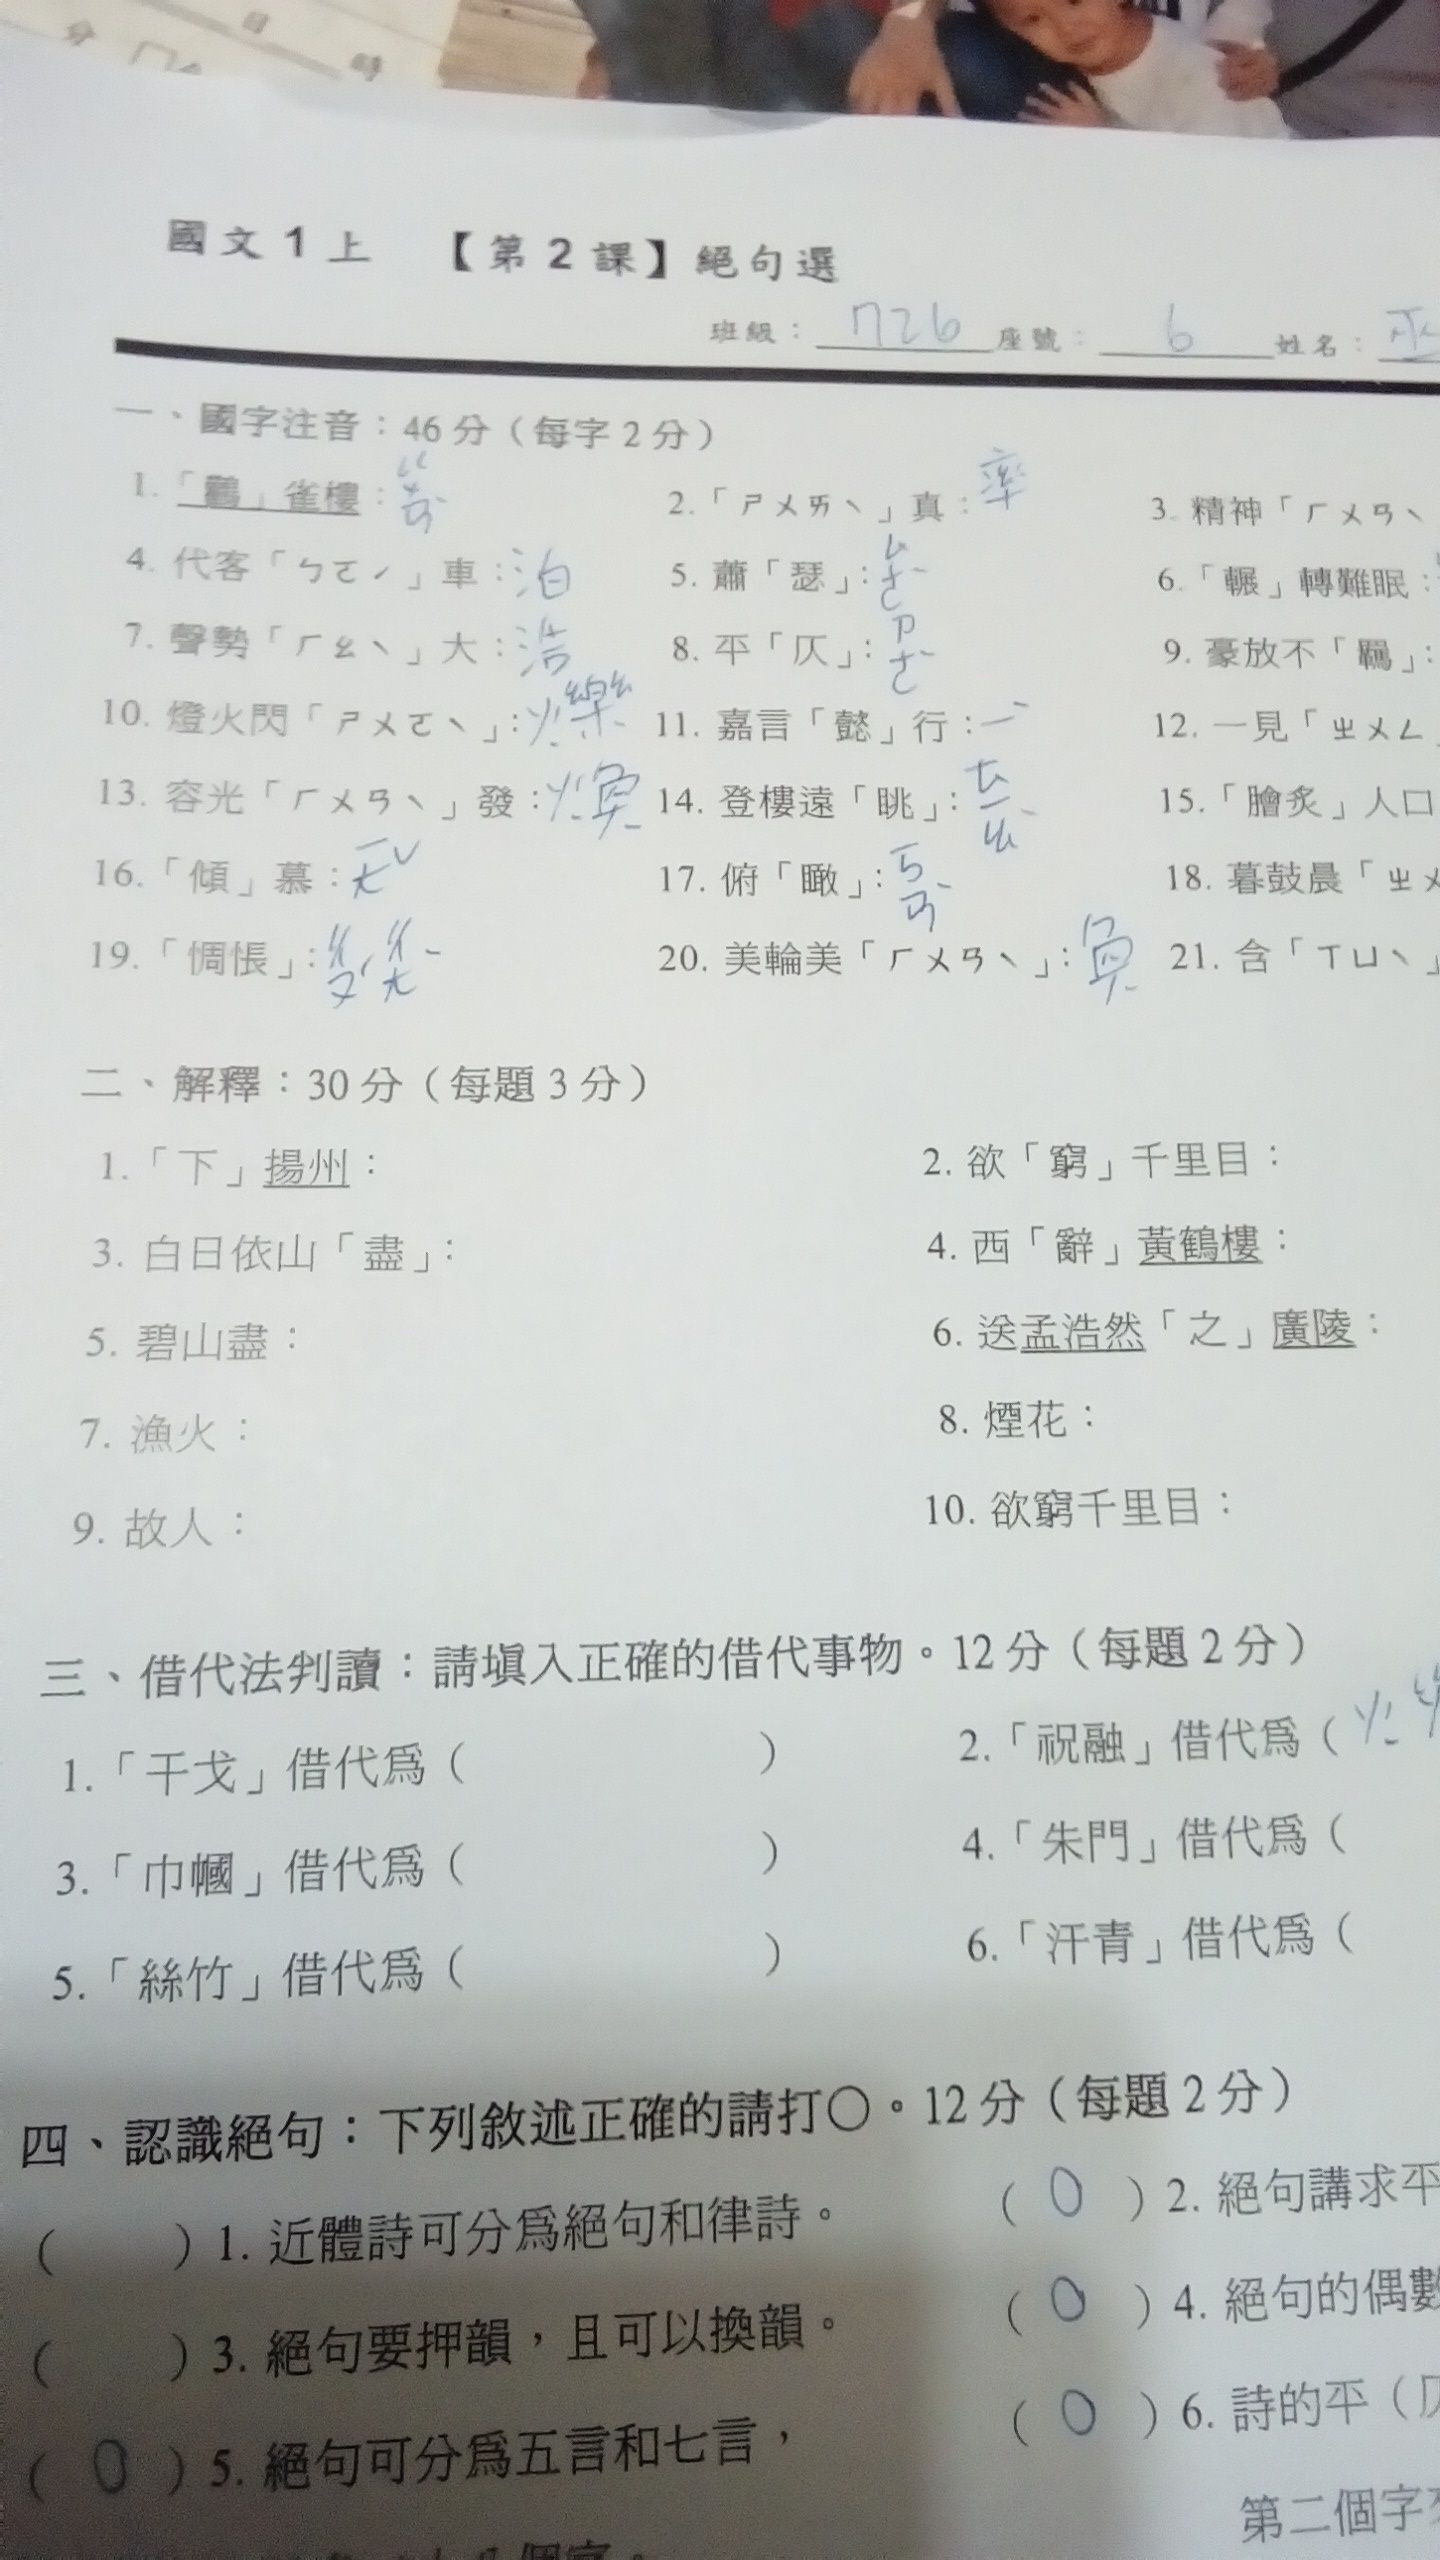 國文1上 【第2課】絕句選
班級：726 座號：6 姓名：巫
一、國字注音：46分（每字2分）
1.「鸛」雀樓：ㄍㄨㄢˋ 2.「ㄕㄨㄞˋ」真：率 3. 精神「ㄏㄨㄢˋ
4. 代客「ㄅㄛˊ」車：泊 5. 蕭「瑟」：ㄙㄜˋ 6.「輾」轉難眠：
7. 聲勢「ㄏㄠˋ」大：浩 8. 平「仄」：ㄗㄜˋ 9. 豪放不「羈」：
10. 燈火閃「ㄕㄨㄛˋ」：爍 11. 嘉言「懿」行：ㄧˋ 12. 一見「ㄓㄨㄥ
13. 容光「ㄏㄨㄢˋ」發：煥 14. 登樓遠「眺」：ㄊㄧㄠˋ 15.「膾炙」人口
16.「傾」慕： 17. 俯「瞰」：ㄎㄢˋ 18. 暮鼓晨「ㄓㄨ
19.「惆悵」：ㄔㄡˊㄔㄤˋ 20. 美輪美「ㄏㄨㄢˋ」：奐 21. 含「ㄒㄩˋ」
二、解釋：30分（每題3分）
1.「下」揚州： 2. 欲「窮」千里目：
3. 白日依山「盡」： 4. 西「辭」黃鶴樓：
5. 碧山盡： 6. 送孟浩然「之」廣陵：
7. 漁火： 8. 煙花：
9. 故人： 10. 欲窮千里目：
三、借代法判讀：請填入正確的借代事物。12分（每題2分）
1.「干戈」借代為（ ） 2.「祝融」借代為（火
3.「巾幗」借代為（ ） 4.「朱門」借代為（
5.「絲竹」借代為（ ） 6.「汗青」借代為（
四、認識絕句：下列敘述正確的請打○。12分（每題2分）
（ ）1. 近體詩可分為絕句和律詩。 （O）2. 絕句講求平
（ ）3. 絕句要押韻，且可以換韻。 （O）4. 絕句的偶數
（O）5. 絕句可分為五言和七言， （O）6. 詩的平（仄
第二個字
個字。